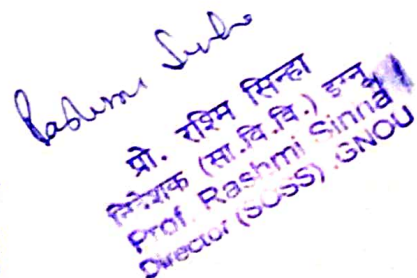 Rashmi Sinha
प्रो. रश्मि सिन्हा
निदेशक (सा.वि.वि.) इग्नू
Prof. Rashmi Sinha
Director (SOSS) IGNOU